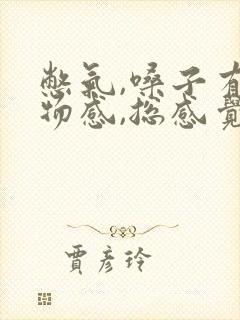 憋氣,嗓子有
物感,總感覺
賈彥玲